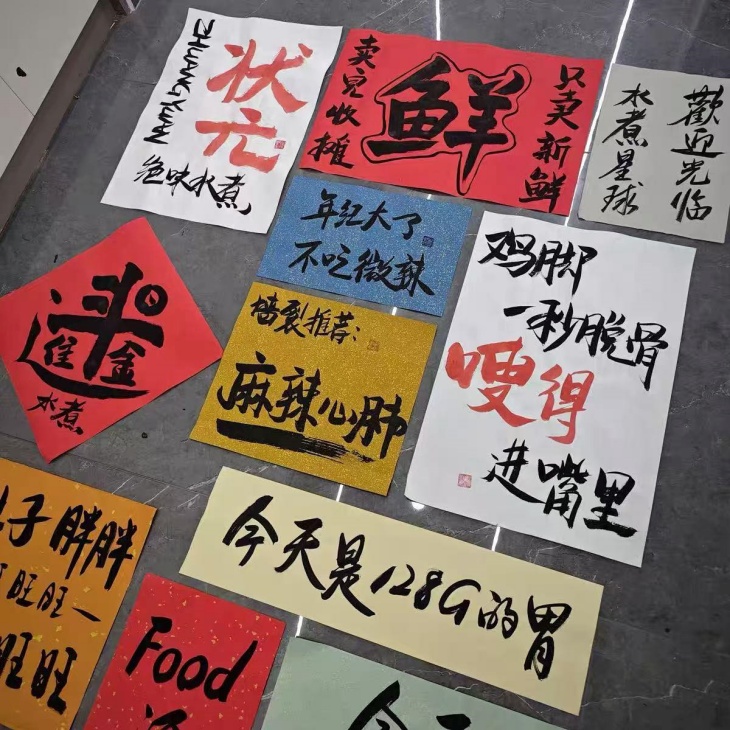 ZHUANGYUAN
状元
绝味水煮
卖完收摊
鲜
只卖新鲜
歡迎光临
水煮星球
年纪大了
不吃微辣
墙裂推荐:
麻辣心肺
鸡脚
一秒脱骨
嗖得
进嘴里
水煮
子胖胖
旺旺一
旺旺
今天是128G的胃
Food